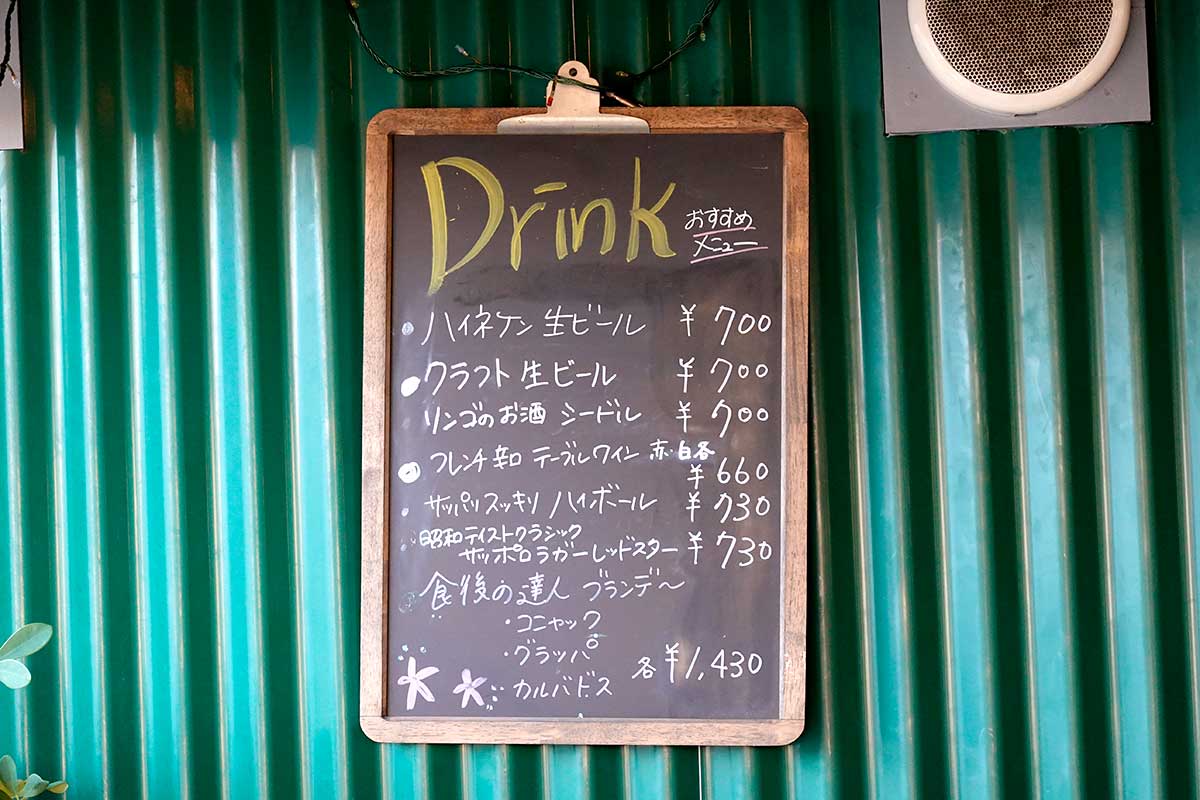 Drink おすすめ
メニュー
ハイネケン 生ビール ¥700
クラフト 生ビール ¥700
リンゴのお酒 シードル ¥700
フレンチ辛口 テーブルワイン 赤・白各
¥660
サッパリスッキリ ハイボール ¥730
昭和テイストクラシック
サッポロラガーレッドスター ¥730
食後の達人 ブランデ〜
・コニャック
・グラッパ 各¥1,430
・カルバドス